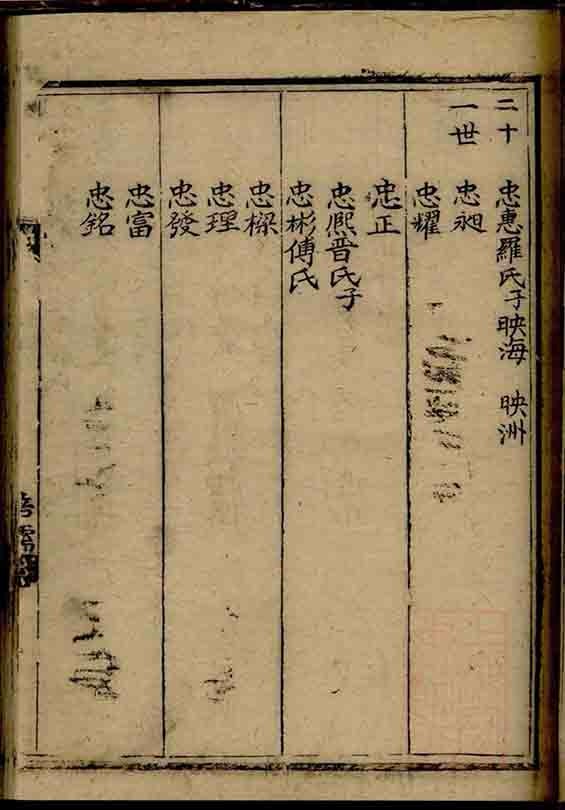 二十一世
忠惠羅氏子映海 映洲
忠昶
忠耀
忠正
忠熙晋氏子
忠彬傅氏
忠樑
忠理
忠發
忠富
忠銘